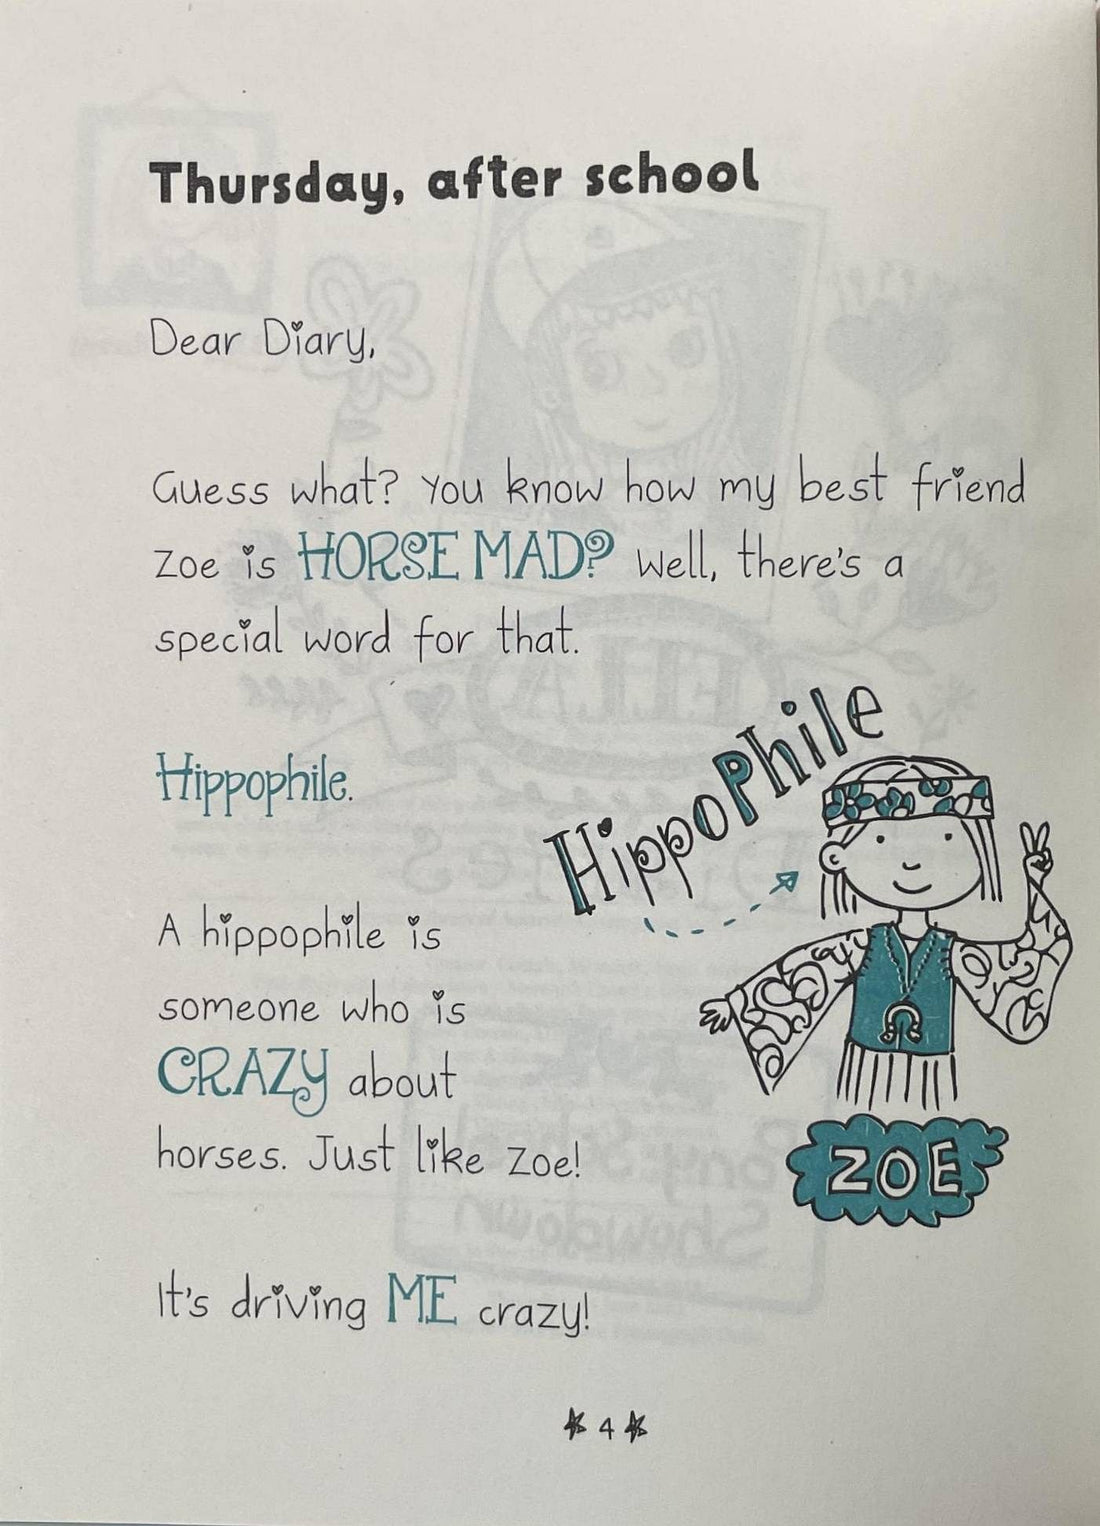 Thursday, after school
Dear Diary,
Guess what? You know how my best friend
Zoe is HORSE MAD? Well, there's a
special word for that.
Hippophile.
HippoPhile
A hippophile is
someone who is
CRAZY about
horses. Just like Zoe!
ZOE
It's driving ME crazy!
4